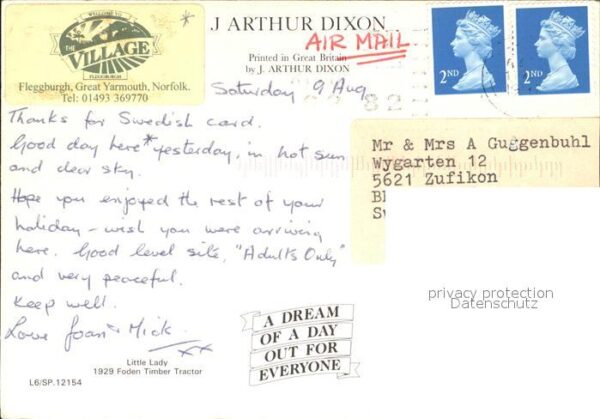 WELCOME TO
THE
VILLAGE
FLEGGBURGH
Fleggburgh, Great Yarmouth, Norfolk.
Tel: 01493 369770
*
J ARTHUR DIXON
AIR MAIL
Printed in Great Britain
by J. ARTHUR DIXON
2ND
2ND
Saturday 9 Aug
Thanks for Swedish card.
Good day here * yesterday, in hot sun
and clear sky.
Hope you enjoyed the rest of your
holiday - wish you were arriving
here. Good level site, "Adults Only"
and very peaceful.
Keep well.
Love Joan & Mick.
xx
Mr & Mrs A Guggenbuhl
Wygarten 12
5621 Zufikon
privacy protection
Datenschutz
A DREAM
OF A DAY
OUT FOR
EVERYONE
Little Lady
1929 Foden Timber Tractor
L6/SP.12154